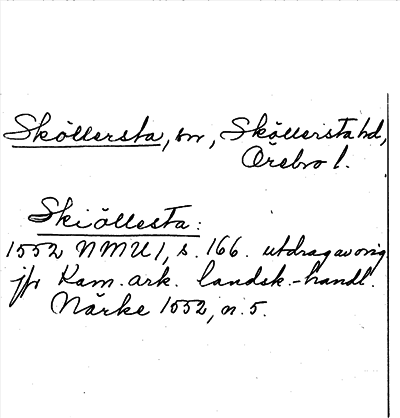 Sköllersta, sn, Sköllersta hd,
Örebro l.
Skiöllesta:
1552 NMU 1, s. 166. utdrag av orig.
jfr Kam. ark. landsk.-handl.
Närke 1552, n. 5.